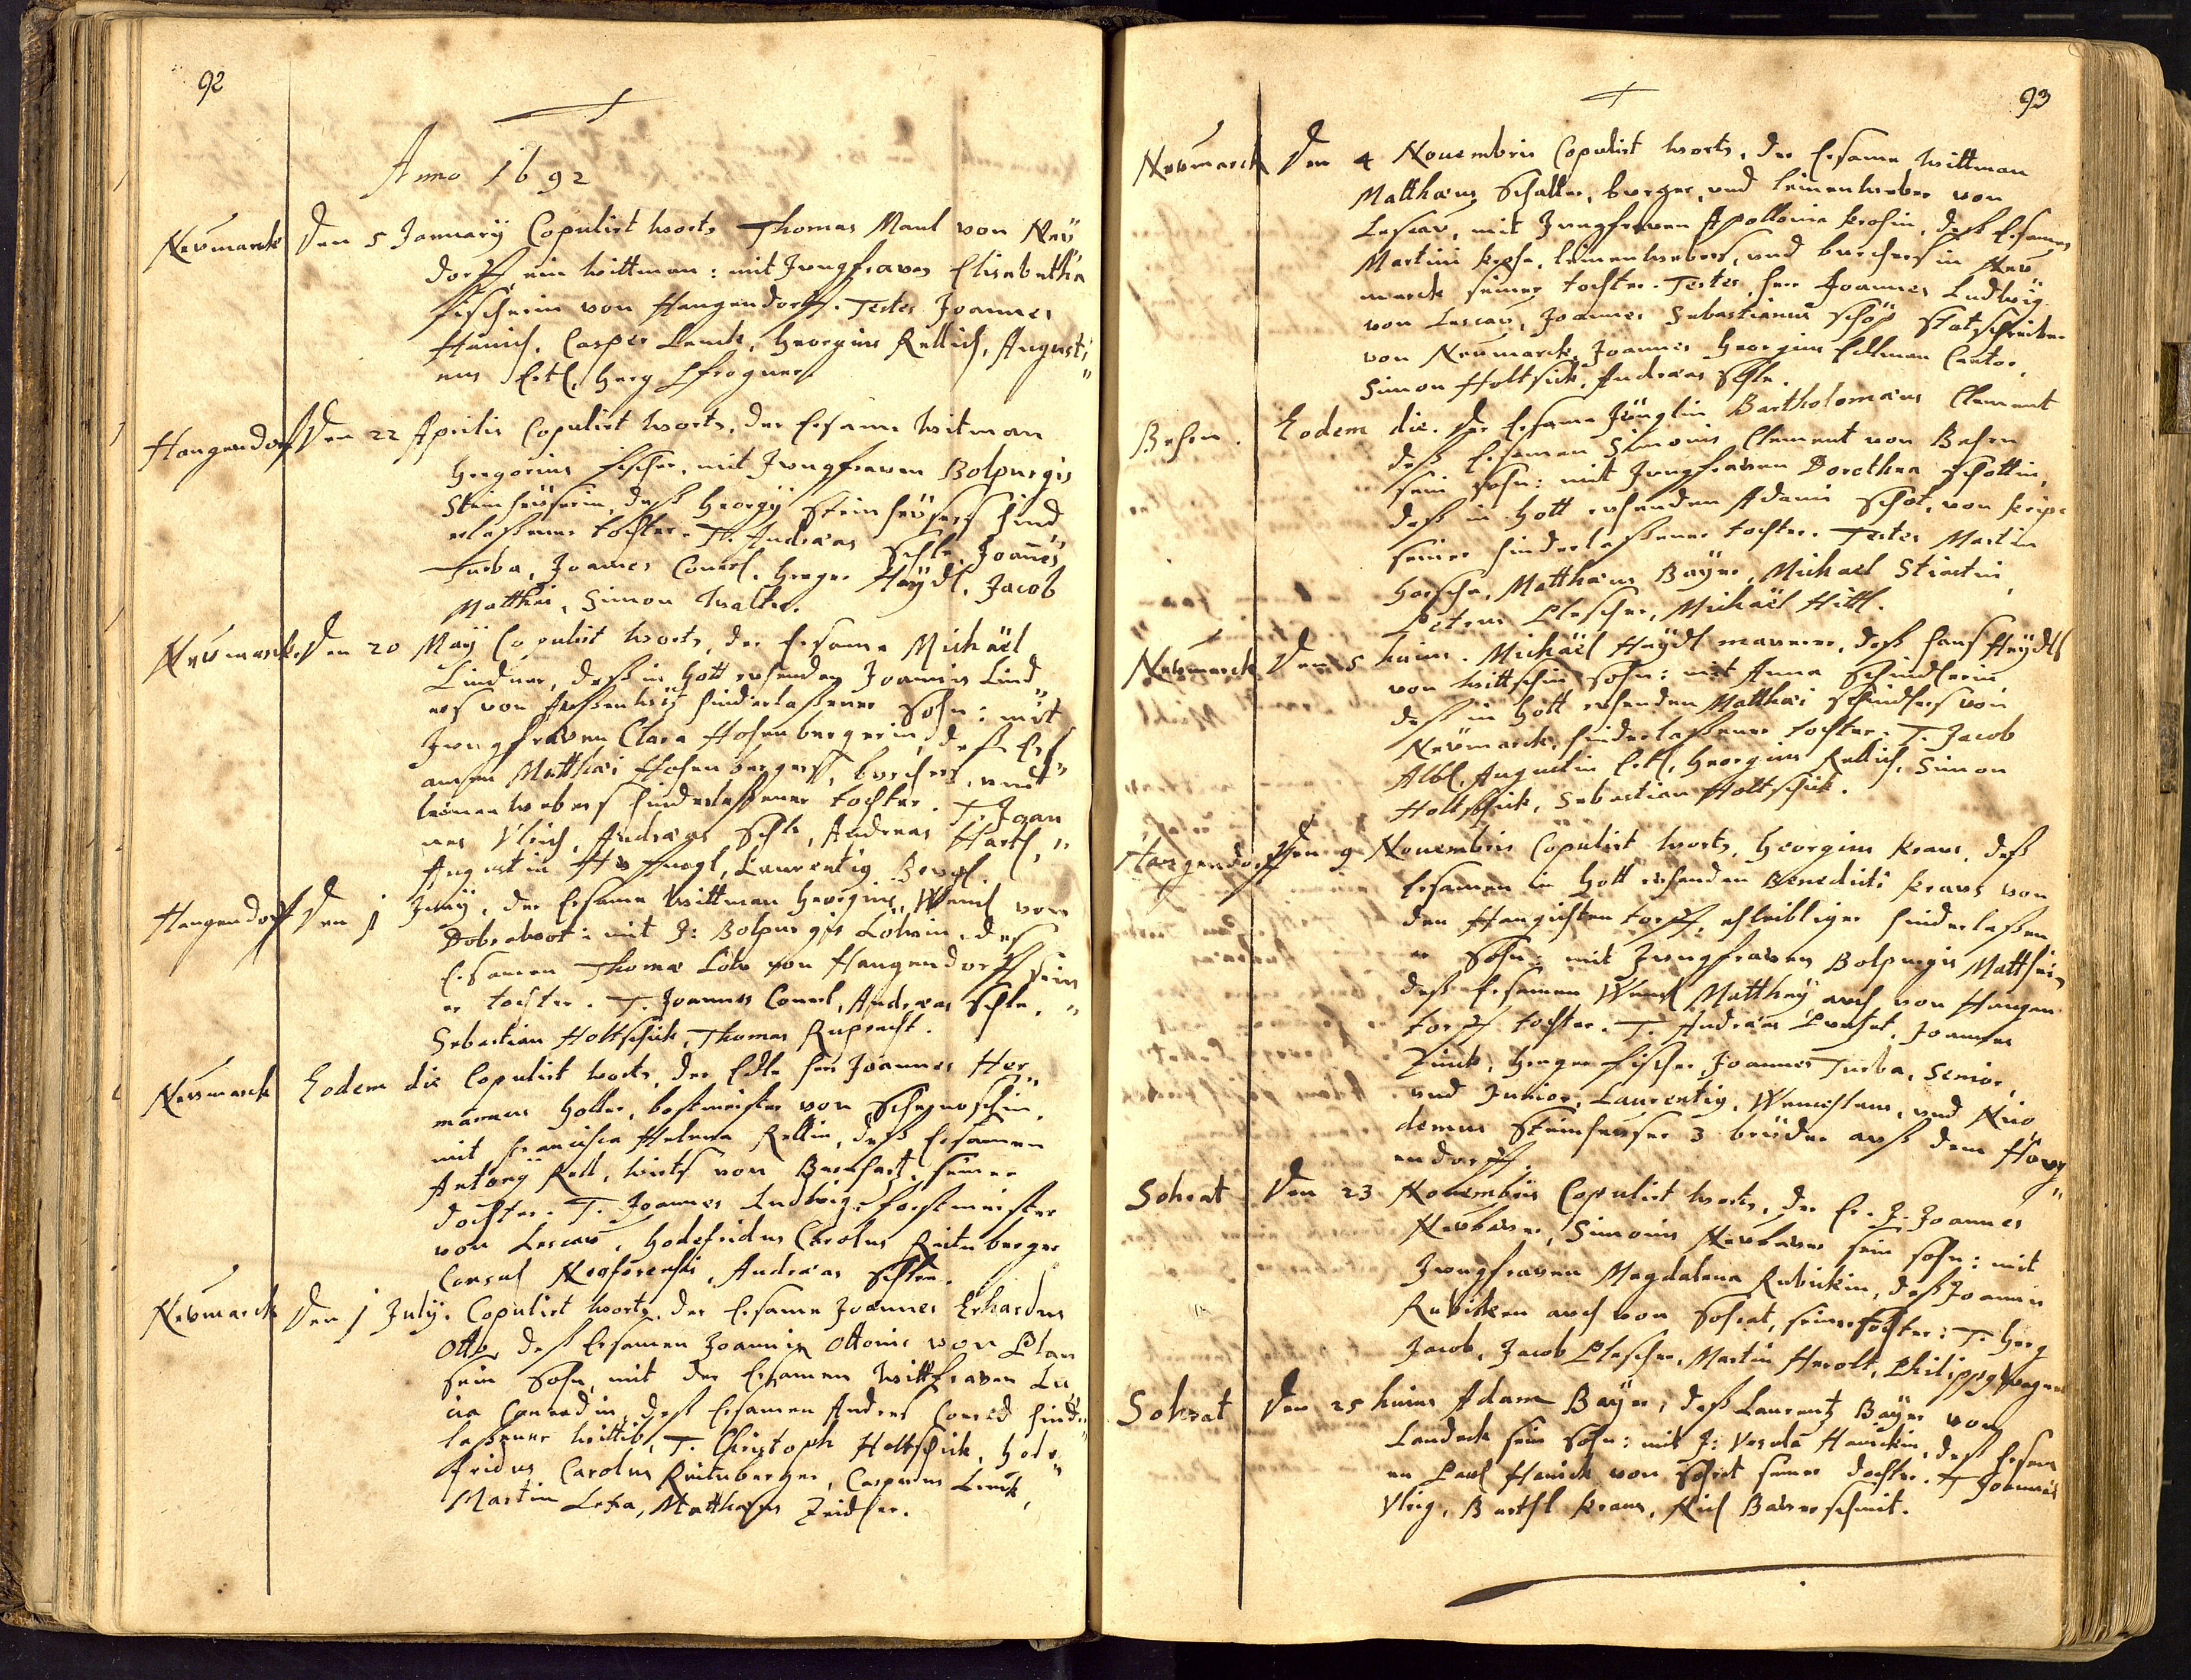 92
Anno 1692
Neümarck Den 5 Januarÿ Copulirt worts Thomas Maul von Neü
dorff ein wittman: mit Jungfrauen Elisabetha
fischerin von Hangendorff. Testes Joannes
Hänich, Casper Lenck, Georgius Rellich, Augusti
nus Ertl, Georg Pfrogner
Hangendorff Den 22 Aprilis Copulirt worts, der Ersame witman
Gregorius fischer, mit Jungfrauen Bolpurgis
Steinheüserin, deß Georgÿ Steinheüsers hind
erlaßener tochter. T. Andreas Schle Joannes
Turba, Joannes Conrd. Gregor Haÿdl, Jacob
Matthei, Simon Walter.
Neümarck Den 20 Maÿ Copulirt worts, der Ersame Michäel
Lindner, deß in Gott ruhenden Joannis Lind
ers von hinderlaßener Sohn: mit
Jungfrauen Clara Hohenbergerin, deß Ers
amen Matthæi Hohenbergers, burchers, und
leinenwebers hinderlaßener tochter. T. Joan
nes Vlrich, Andreas Schle, Andreas Hartl,
Augustin Laurentig
Hangendorff Den 1 Junÿ, der Ersame wittman Georgius Wencl von
Dobrawot: mit J: Bolpurgis Löwin, des
Ersamen Thomæ Löw von Hangendorff sein
er tochter. T. Joannes Conrd, Andreas Schle,
Sebastian Holtschick, Thomas Ruprecht.
Neümarck Eodem die Copulirt worts, der Edle herr Joannes Her
mannus Holler, von
mit Francisca Helena Rellin, deß Ersamen
Antonÿ Rell, wirts von seiner
dochter. T. Joannes Ludwig, forstmeister
von Lescau, Godefridus Carolus Reitenberger
Consul Neoforensis, Andreas Schle.
Neümarck Den 1 Julÿ. Copulirt worts, der Ersame Joannes Erhardus
Otto, deß Ersamen Joannis Ottonis von Plan
sein Sohn, mit der Ersamen Wittfrauen Lu
cia Conradin, deß Ersamen Andres Conrad hinder
laßener wittib, T. Christoph Holtschick, Gode
fridus Carolus Reitenberger, Casparus Lenck,
Martin Leha, Matthæus Zeidler.
93
Neümarck Den 4 Nouembris Copulirt worts, der Ersame wittman
Matthæus Schaller, burger, und leinenweber von
Lescau, mit Jungfrauen Apollonia krohin, deß Ersamen
Martini krohe, leinenwebers, und burchers in Neü
marck seiner tochter. Testes, herr Joannes Ludwig
von Lescau, Joannes Sebastianus Schöp statschreiber
von Neümarck, Joannes Georgius Edlman Cantor,
Simon Holtsick, Andreas Schle.
Behrn. Eodem die. der Ersame Jüngling Bartholomæus Clement
deß Ersamen Simonis Clement von Behrn
sein sohn: mit Jungfrauen Dorothea Schottin,
deß in Gott ruhenden Adami Schot, von
seiner hinderlaßener tochter. Testes Martin
Matthæus Baÿer, Michael
Petrus Plescher, Michäel Hittl.
Neümarck Den 5 huius. Michäel Haÿdl maurer, deß hans Haÿdls
von sohn: mit Anna Schindlerin
deß in Gott ruhenden Matthæi Schindlers von
Neümarck hinderlaßener tochter. T. Jacob
Albl, Augustin Ertl, Georgius Rellich, Simon
Holtschick, Sebastian Holtschick.
Hangendorff Den 9 Nouembris Copulirt worts, Georgius kraus, deß
Ersamen in Gott ruhenden Benedicti kraus von
den torff, ehleibliger hinderlaßen
er Sohn: mit Jungfrauen Bolpurgis Matthein,
deß Ersamen Wencl Matthæÿ auch von Hangen
torff tochter. T. Andreas Joannes
Gregor fischer, Joannes Turba, Senior,
und Junior, Laurentig, Wenceslaus, und Nico
demus Steinheuser 3 brüder auß dem Hang
endorff.
Sohrat Den 23 Nouembris Copulirt worts, der Er. J. Joannes
Neübauer, Simonis Neubauer sein sohn: mit
Jungfrauen Magdalena Rubickin, deß Joannis
Rubicken auch von Sohrat, seiner tochter: T. Georg
Jacob, Jacob Plescher, Martin Herolt, Philippg Wagner
Sohrat Den 25 huius Adam Baÿer, deß Laurentz Baÿer von
Landeck sein Sohn: mit J: Vrsula Hanickin, deß Ersam
en Paul Hanick von Sohrat seiner dochter. T Joannes
Vlrig, Barthl kraus, Nicl Bauerschmit.